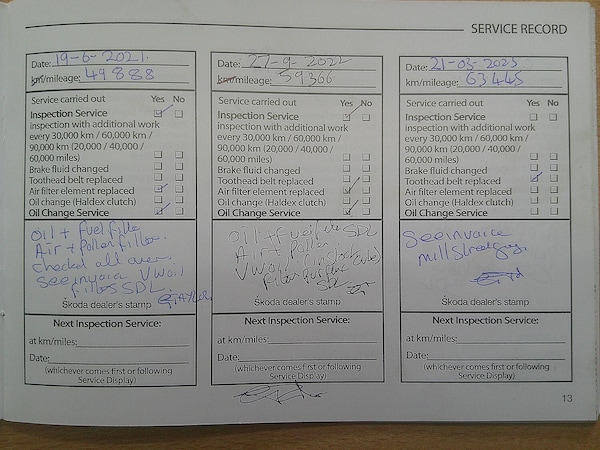 SERVICE RECORD
Date: 19-6-2021.
km/mileage: 49888
Service carried out Yes No
Inspection Service
inspection with additional work
every 30,000 km / 60,000 km /
90,000 km (20,000 / 40,000 /
60,000 miles)
Brake fluid changed
Toothead belt replaced
Air filter element replaced
Oil change (Haldex clutch)
Oil Change Service
Oil + fuel filter
Air + Pollen filter.
checked all over.
See invoice VW oil
filters SDL.
Škoda dealer's stamp
Next Inspection Service:
at km/miles:
Date:
(whichever comes first or following
Service Display)
Date: 27-9-2022
km/mileage: 59366
Service carried out Yes No
Inspection Service
inspection with additional work
every 30,000 km / 60,000 km /
90,000 km (20,000 / 40,000 /
60,000 miles)
Brake fluid changed
Toothead belt replaced
Air filter element replaced
Oil change (Haldex clutch)
Oil Change Service
oil + fuel filter SDL
Air + Pollen
VW oil
SDL
Škoda dealer's stamp
Next Inspection Service:
at km/miles:
Date:
(whichever comes first or following
Service Display)
Date: 21-03-2023
km/mileage: 63445
Service carried out Yes No
Inspection Service
inspection with additional work
every 30,000 km / 60,000 km /
90,000 km (20,000 / 40,000 /
60,000 miles)
Brake fluid changed
Toothead belt replaced
Air filter element replaced
Oil change (Haldex clutch)
Oil Change Service
See invoice
mill street
Škoda dealer's stamp
Next Inspection Service:
at km/miles:
Date:
(whichever comes first or following
Service Display)
13